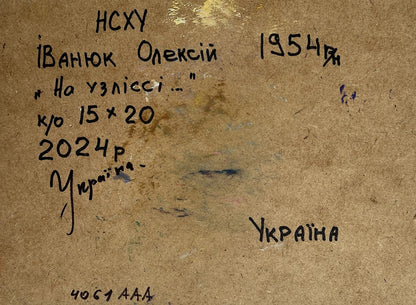 НСХУ
Іванюк Олексій 1954 р/н
„На узліссі..."
к/о 15×20
2024р
Україна
Україна
4061 AAA